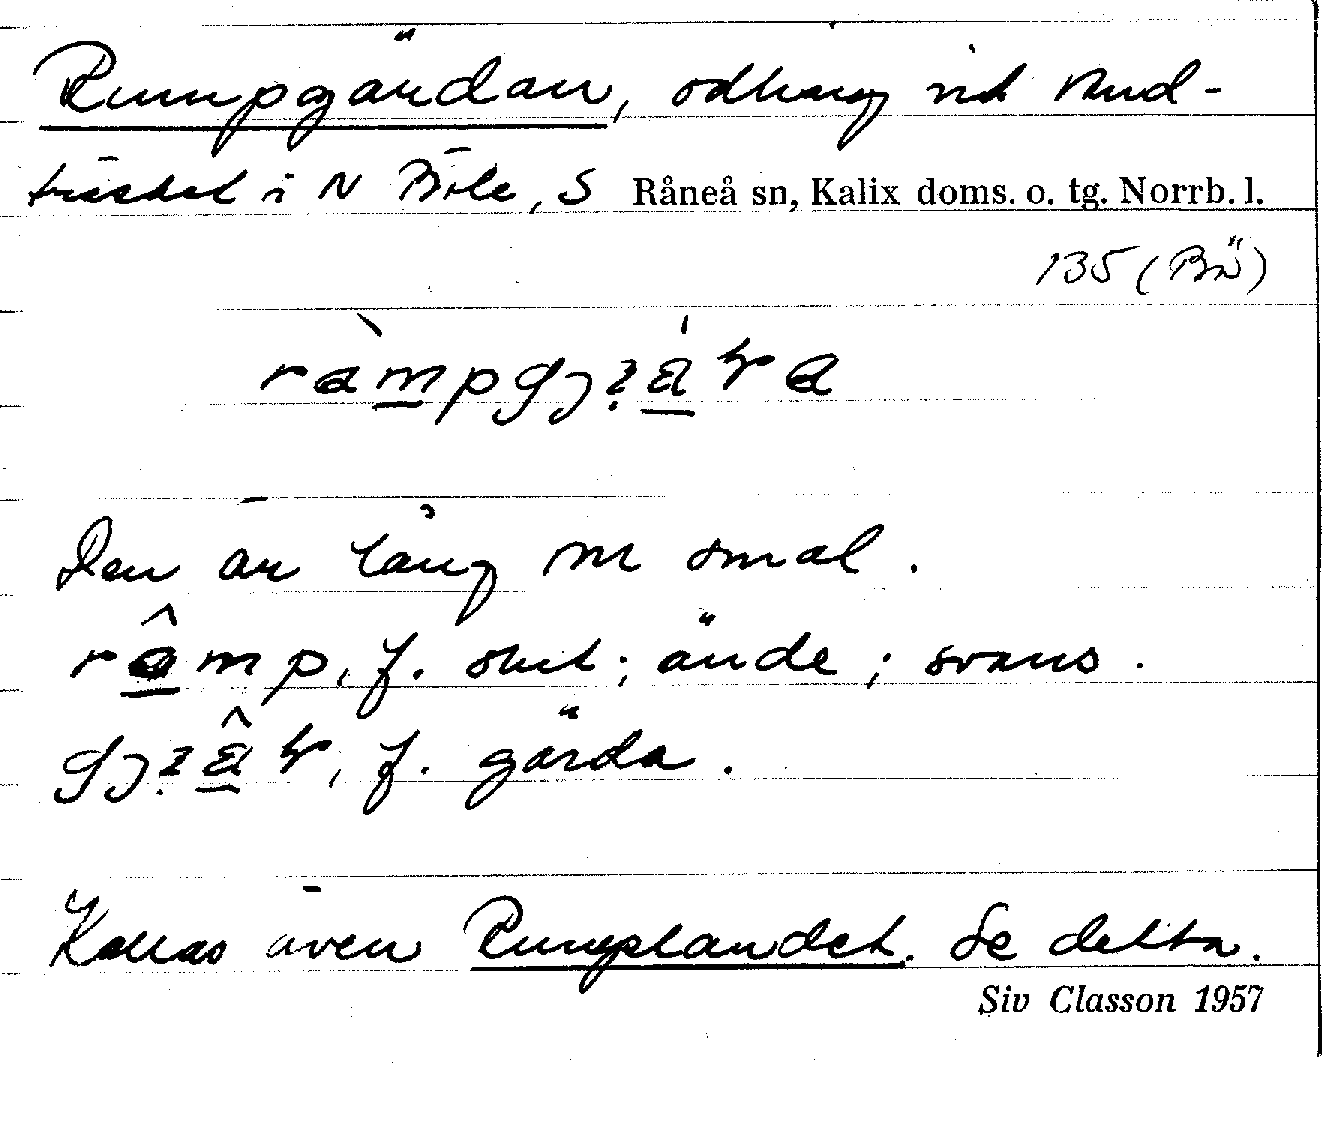 Rumpgärdan, odling vid Rud-
träsket i N Böle, S Råneå sn, Kalix doms. o. tg. Norrb. l.
135 (Bä)
Den är lång och smal.
f. slut; ände; svans.
f. gärda.
Kallas även Rumplandet. Se detta.
Siv Classon 1957